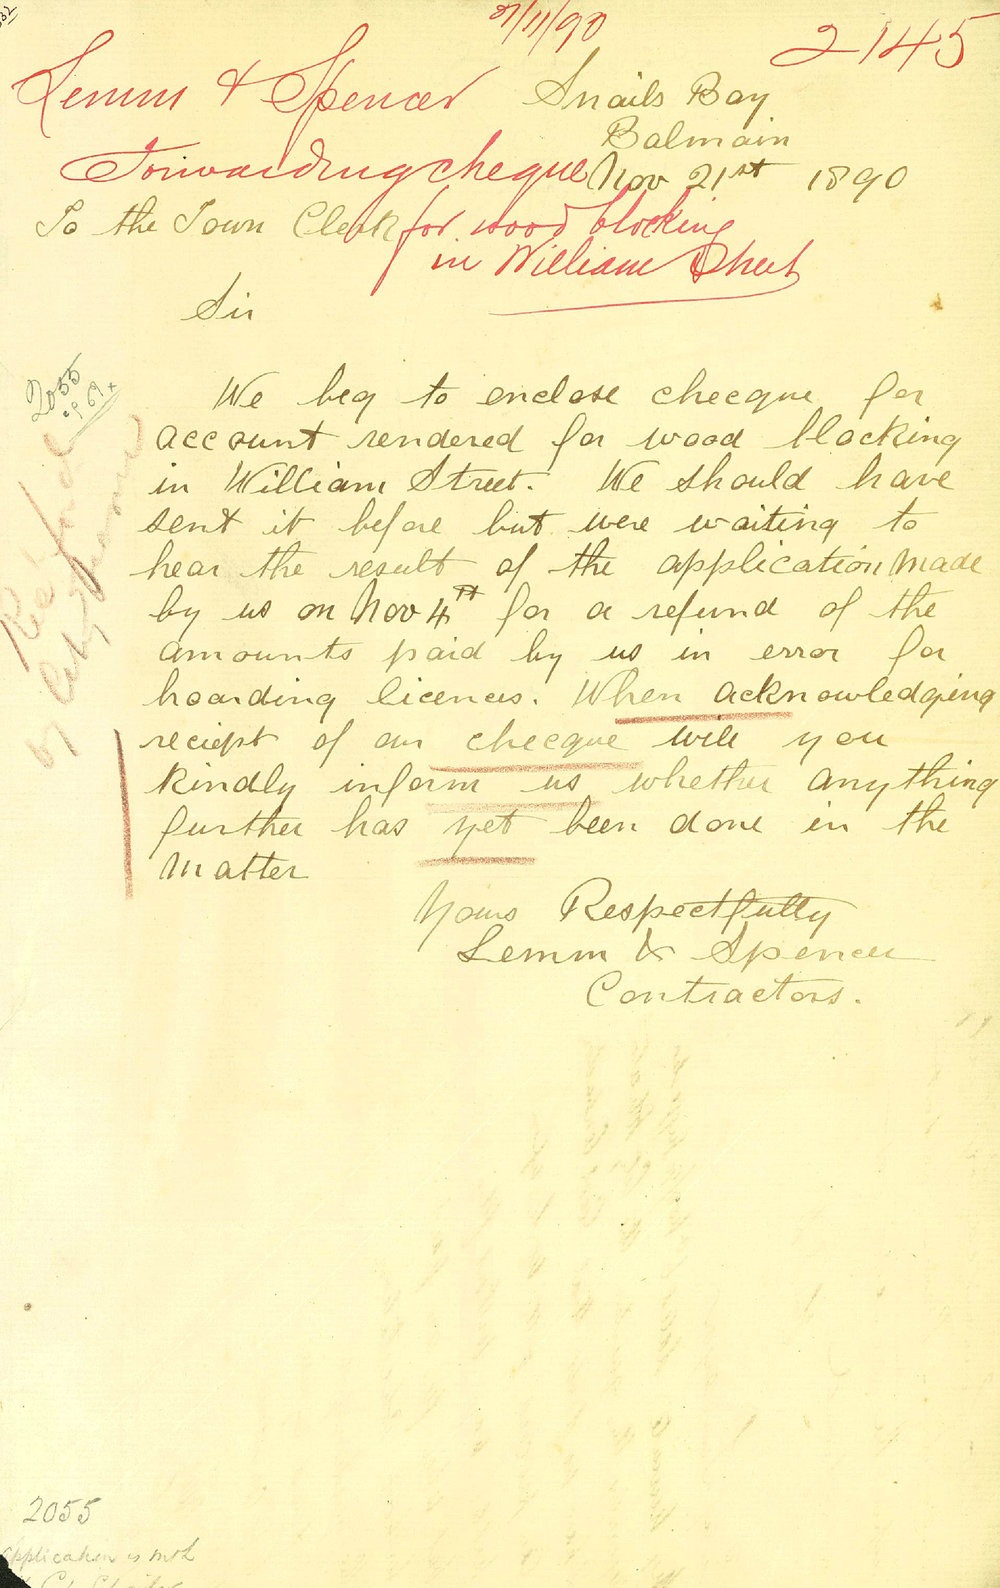 2145
Lemm & Spencer
Forwarding cheque
for wood blocking
in William Street
Snails Bay
Balmain
Nov 21st 1890
To the Town Clerk
Sir
2055
We beg to enclose checque for
account rendered for wood blocking
in William Street. We should have
sent it before but were waiting to
hear the result of the application made
by us on Nov 4th for a refund of the
amounts paid by us in error for
hoarding licences. When acknowledging
reciept of our checque will you
kindly inform us whether anything
further has yet been done in the
matter
Yours Respectfully
Lemm & Spencer
Contractors.
2055
application is with